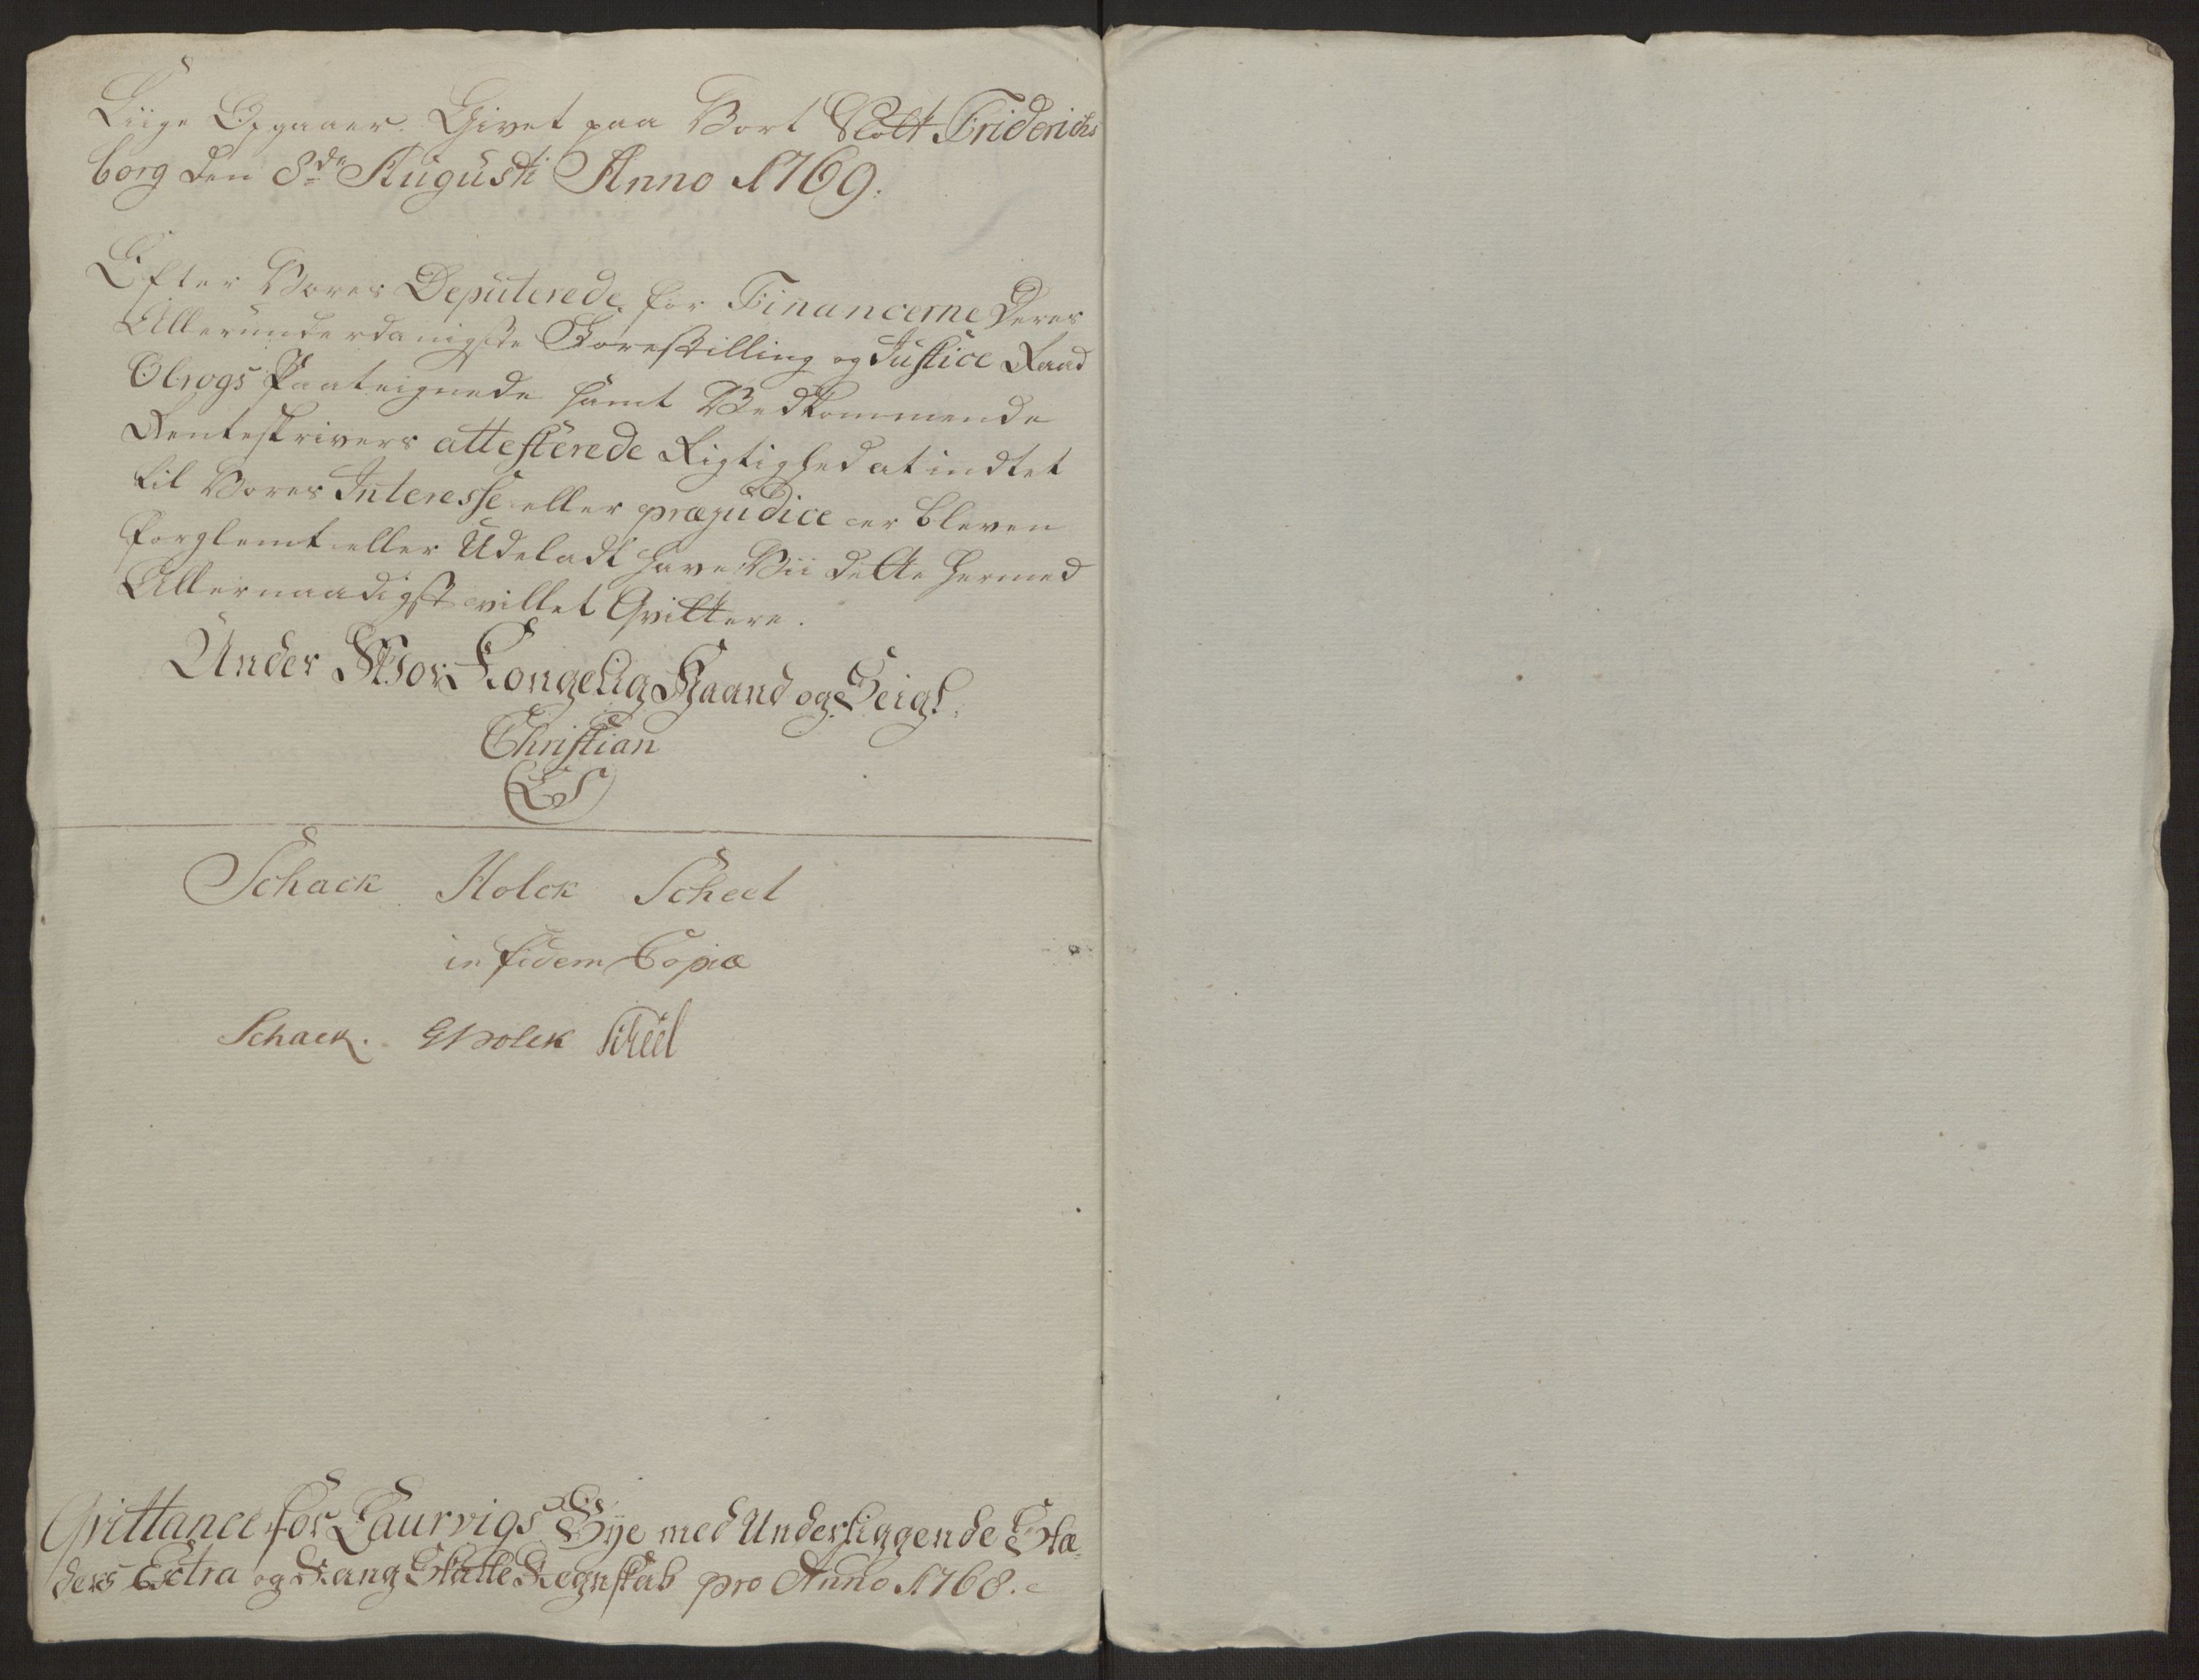 Liige Opgaaer. Givet paa Vort Slott Friderichs
borg den 8de Augusti Anno 1769.
Efter Vores Deputerede for Financerne Deres
Allerunderdanigste Forestilling og Justice Raad
Olrogs Paateignede samt Vedkommende
Renteskrivers attesterede Rigtighed at indtet
til Vores Interesse eller præjudice er bleven
forglemt eller Udeladt have Vii dette hermed
Allernaadigst villet Qvittere.
Under Vor Kongelig Haand og Seigl.
Christian
LS
Schack Holck Scheel
in fidem Copiæ
Schack. GHolck Scheel
Qvittance for Laurvigs Bye med Underliggende Stæ-
ders Extra og Rang Skatte Regnskab pro Anno 1768.